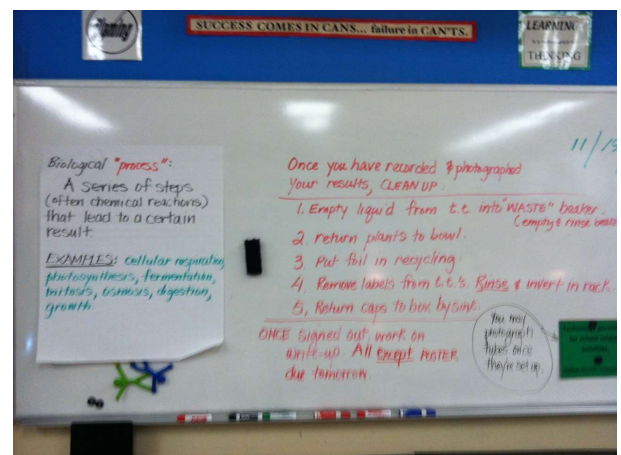 Planning
SUCCESS COMES IN CANS... failure in CAN'TS.
LEARNING
THINKING
11/15
Biological "process":
A series of steps
(often chemical reactions)
that lead to a certain
result.
EXAMPLES: cellular respiration,
photosynthesis, fermentation,
mitosis, osmosis, digestion,
growth
Once you have recorded & photographed
your results, CLEAN UP:
1. Empty liquid from t.t. into "WASTE" beaker.
(empty & rinse beaker
2. return plants to bowl.
3. Put foil in recycling
4. Remove labels from t.t.'s. Rinse & invert in rack.
5. Return caps to box by sink.
ONCE signed out, work on
write-up. All Except POSTER
due tomorrow.
You may
photograph
tubes once
they're set up.